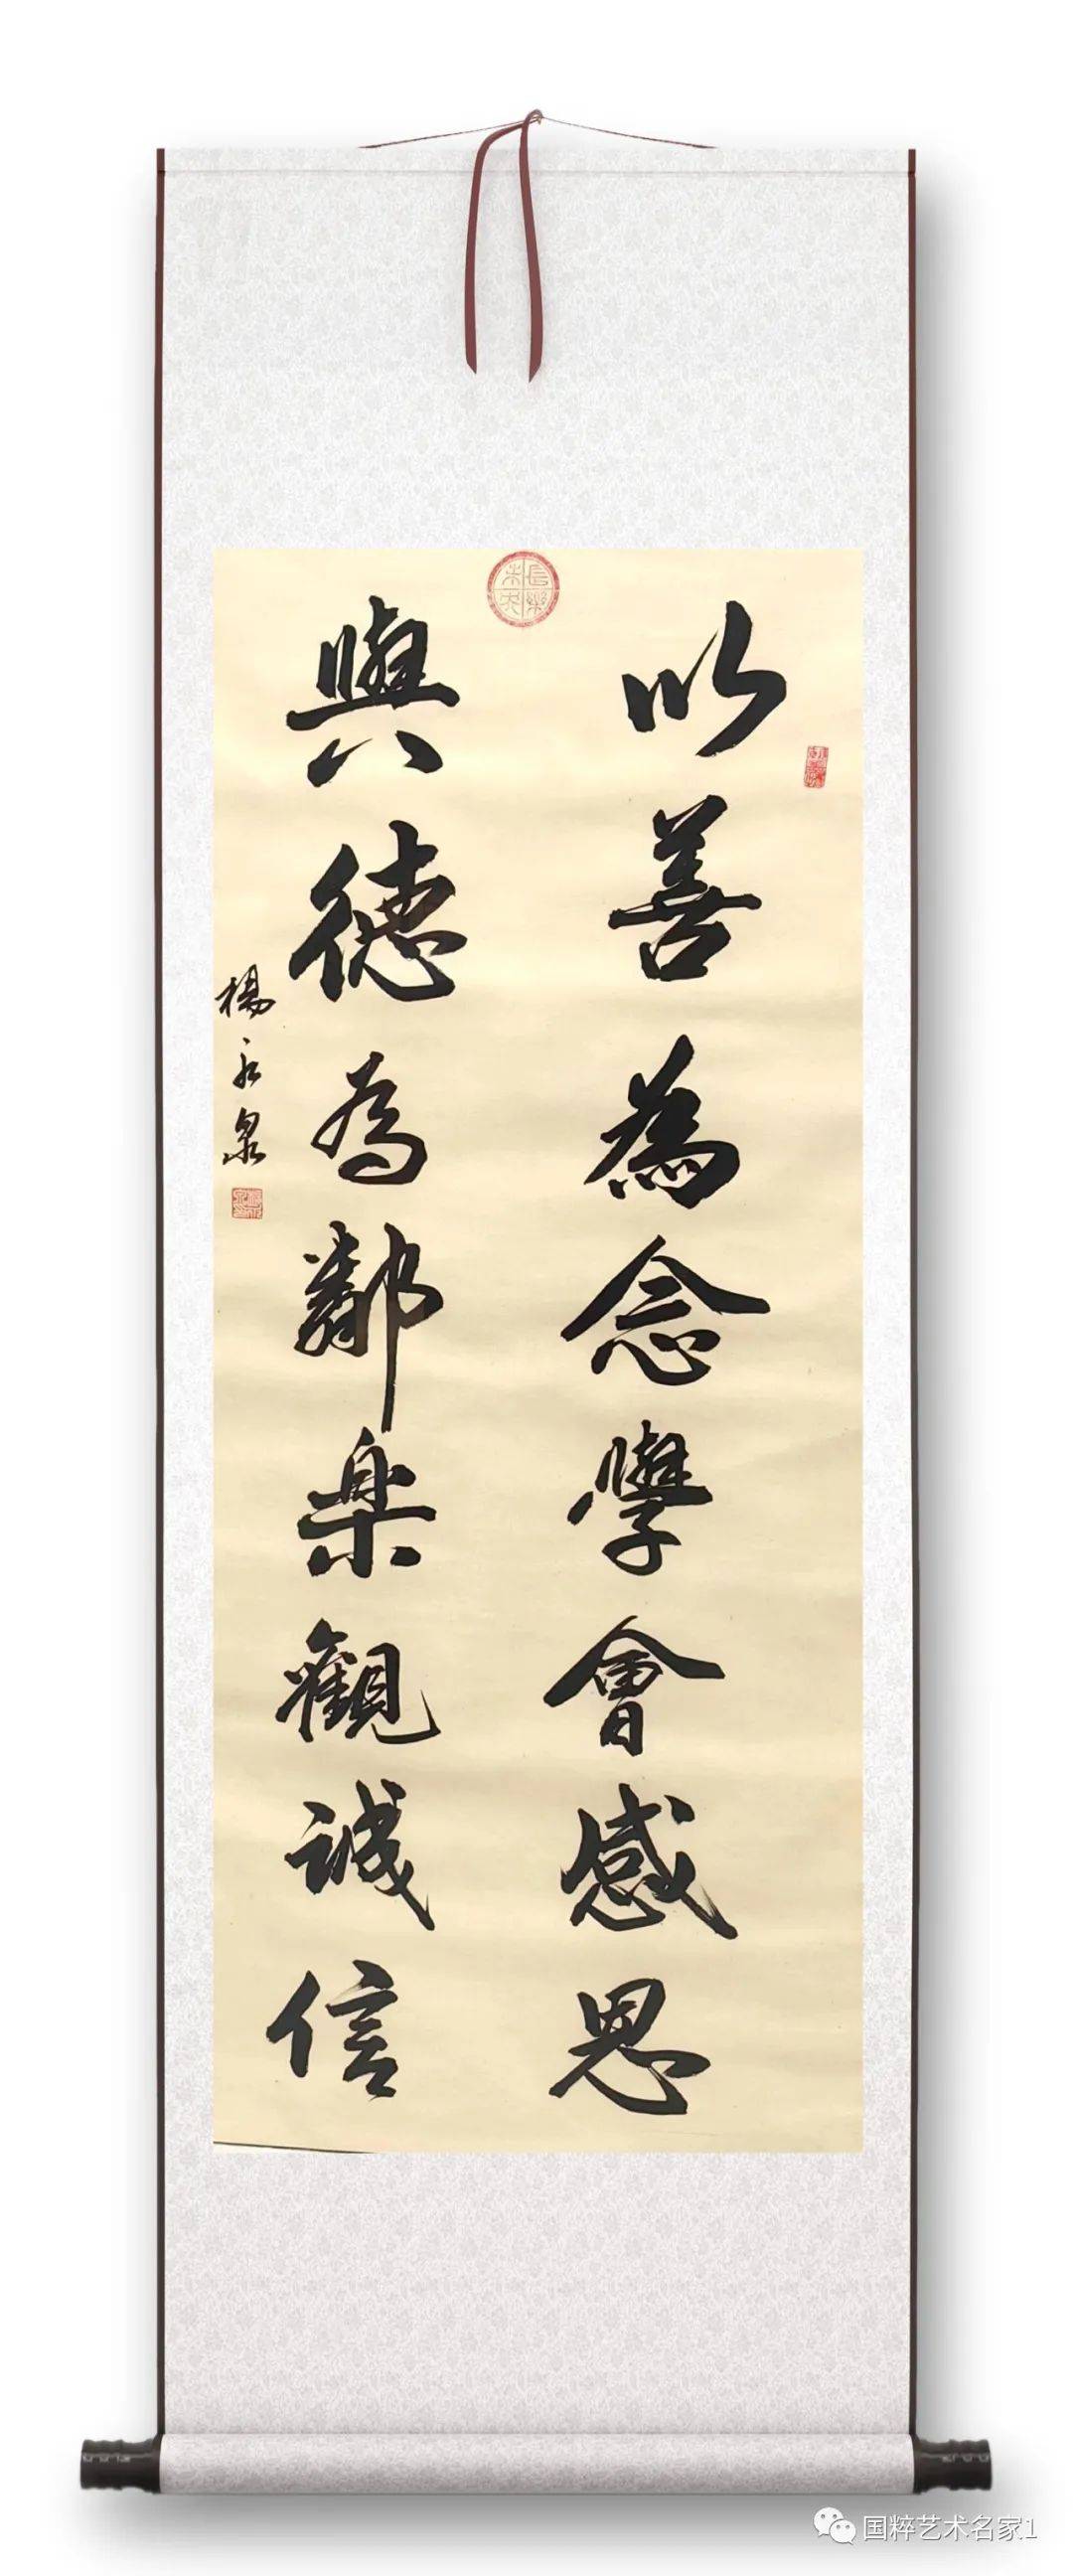 以善為念學會感恩
與德為鄰楽觀诚信
楊永泉
国粹艺术名家1